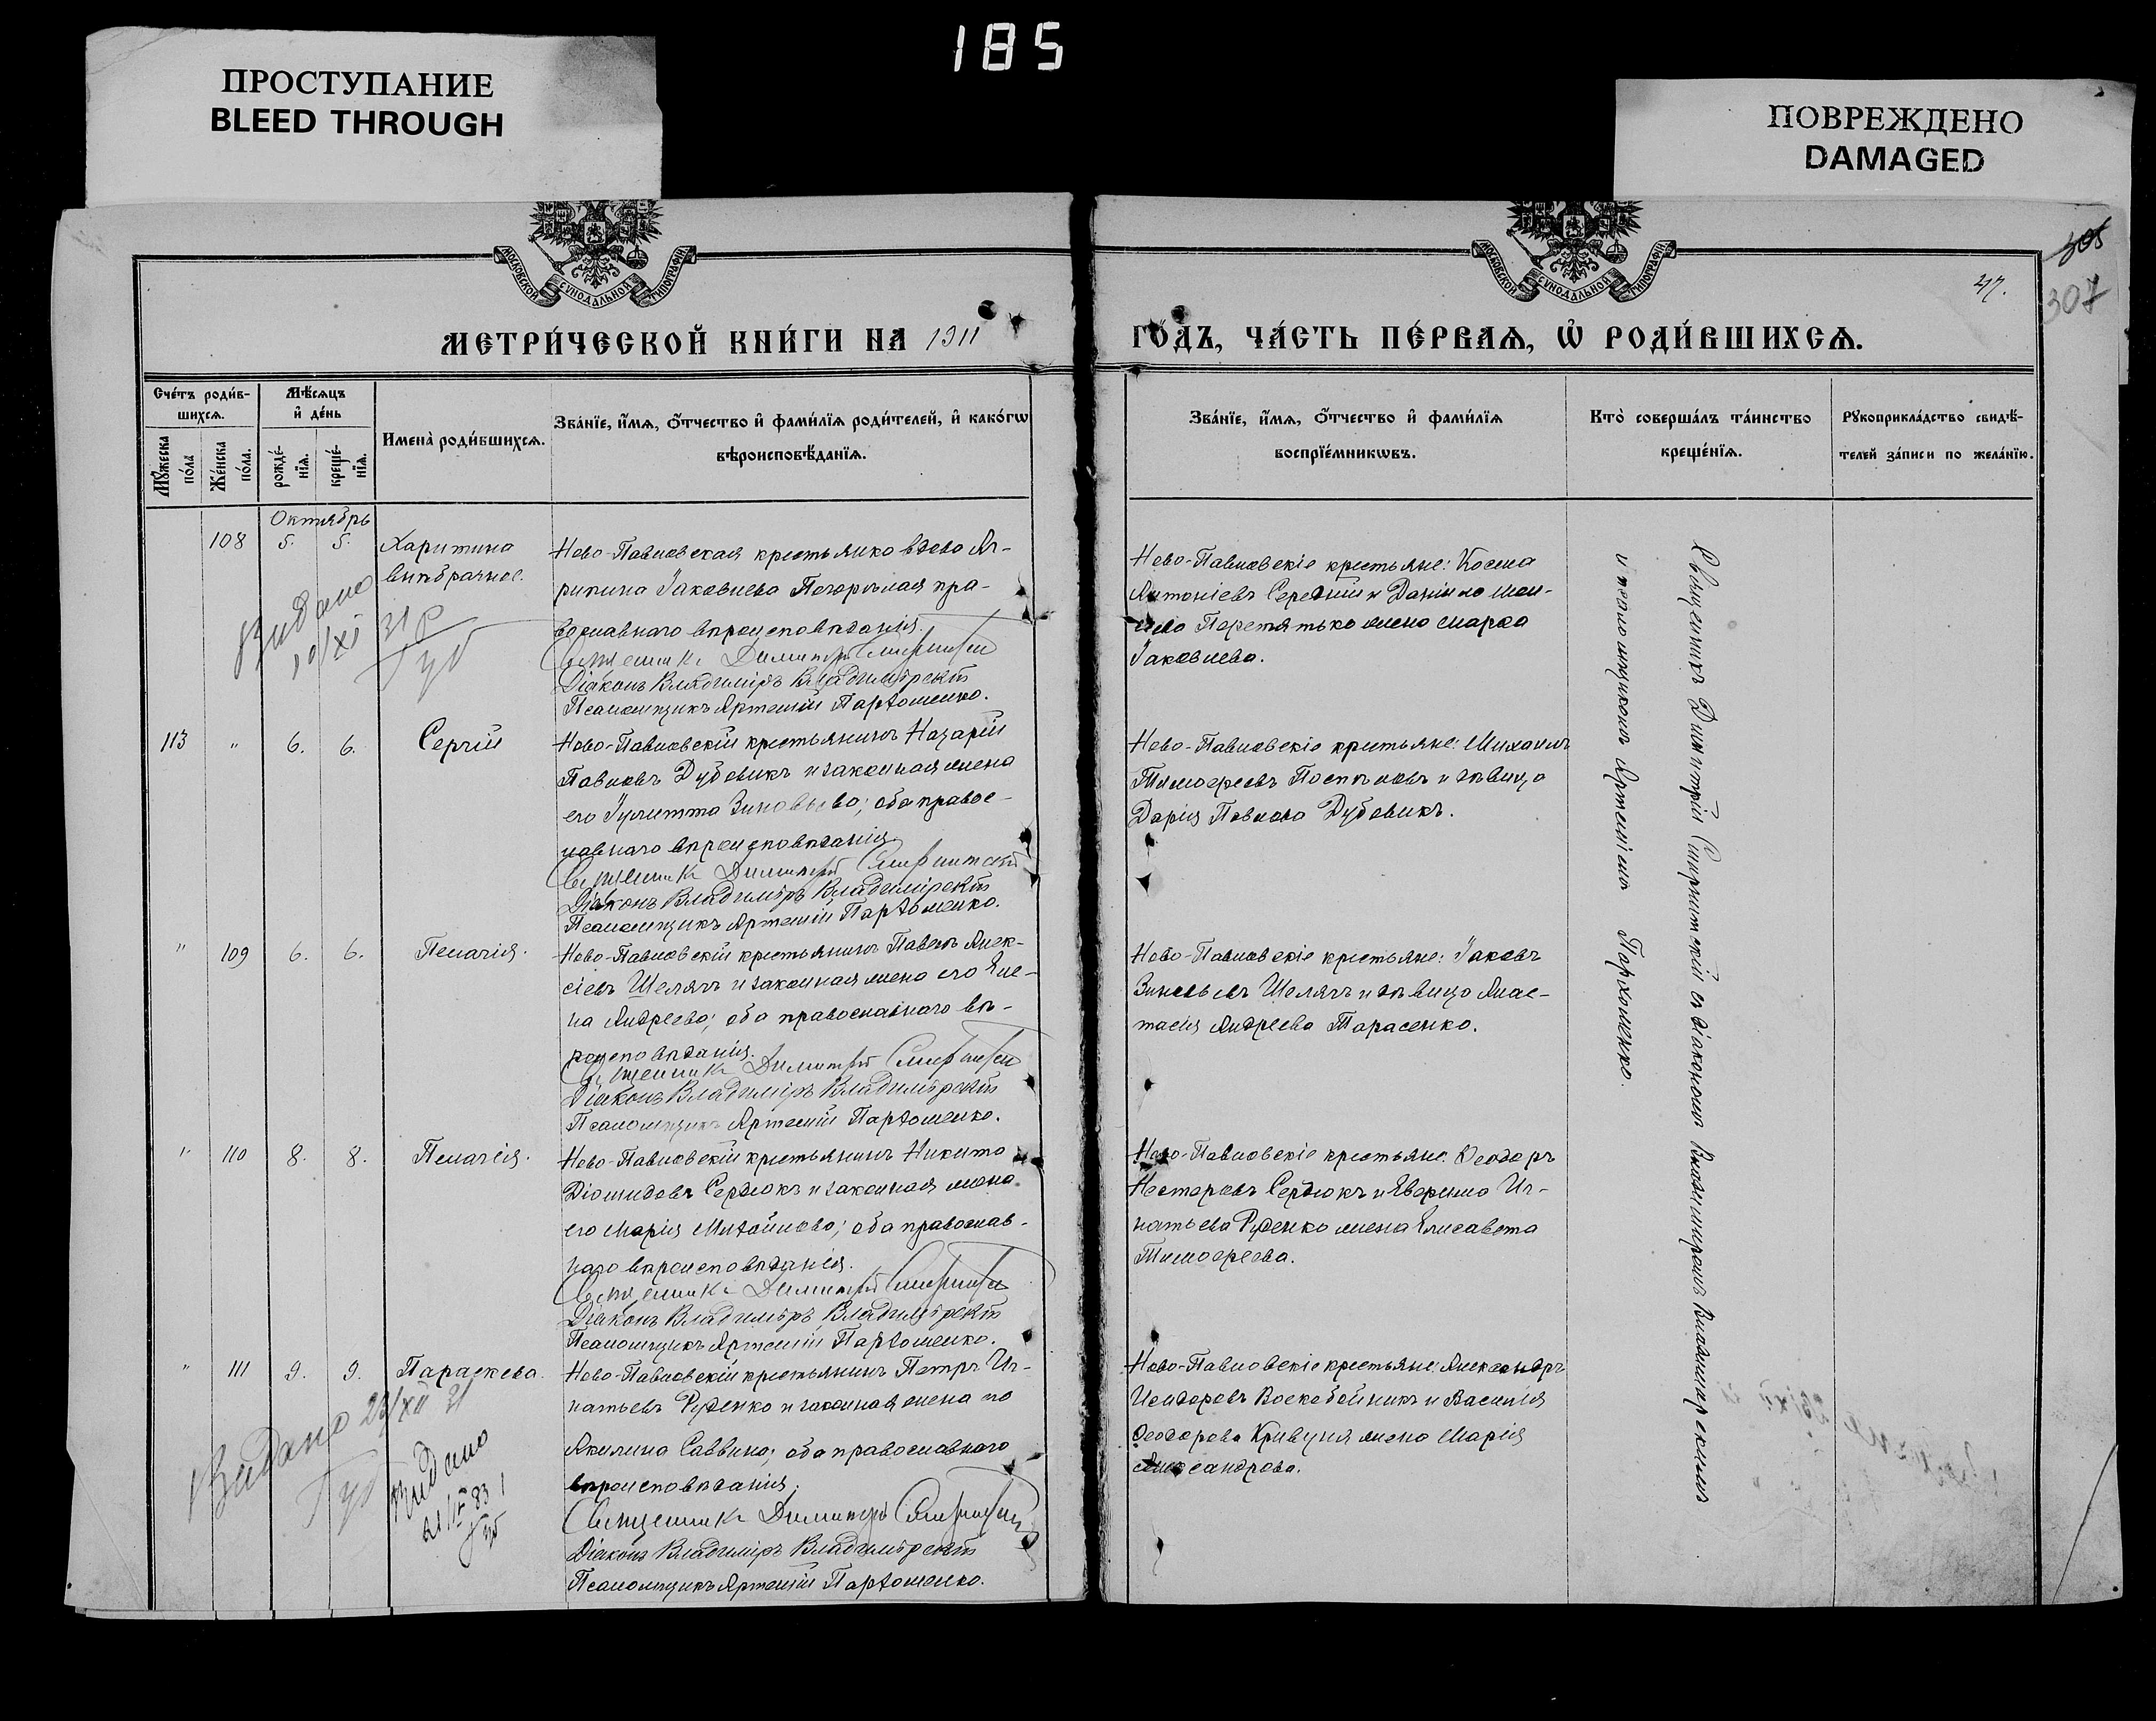 185
ПРОСТУПАНИЕ
BLEED THROUGH
ПОВРЕЖДЕНО
DAMAGED
МОСКОВСКОЙ СѴНОДАЛЬНОЙ ТИПОГРАФІИ
МОСКОВСКОЙ СѴНОДАЛЬНОЙ ТИПОГРАФІИ
305
307
47.
МЕТРИ́ЧЕСКОЙ КНИ́ГИ НА 1911
ГО́ДЪ, ЧА́СТЬ ПЕ́РВАѦ, Ѡ҆ РОДИ́ВШИХСѦ.
Сче́тъ роди́в-
шихсѧ.
Мꙋ́жеска
по́ла
Же́нска
по́ла.
Мѣ́сѧцъ
и҆ де́нь
рожде́-
нїѧ.
креще́-
нїѧ.
Имена̀ роди́вшихсѧ.
Зва́нїе, и҆́мѧ, ѻ҆́тчество и҆ фами́лїѧ роди́телей, и҆ како́гѡ
вѣроисповѣ́данїѧ.
Зва́нїе, и҆́мѧ, ѻ҆́тчество и҆ фами́лїѧ
воспрїе́мникѡвъ.
Кто̀ соверша́лъ та́инство
креще́нїѧ.
Рꙋкоприкла́дство свидѣ́-
телей за́писи по жела́нїю.
Октябрь
108 5. 5. Харитина
внѣбрачное.
Ново-Павловская крестьянка вдова Аг-
рипина Іаковлева Погорѣлая пра-
вославнаго вѣроисповѣданія.
Священникъ Димитрій Смирнитскій
Діаконъ Владиміръ Владимірскій
Псаломщикъ Артемій Пархоменко.
Ново-Павловскіе крестьяне: Косма
Антоніевъ Середній и Даніила
Перетятько жена Марѳа
Іаковлева.
Видано
10/XI 31 р
Губ
113 " 6. 6. Сергій
Ново-Павловскій крестьянинъ Назарій
Павловъ Дубовикъ и законная жена
его Іулитта Зиновьева; оба правос-
лавнаго вѣроисповѣданія
Священникъ Димитрій Смирнитскій
Діаконъ Владиміръ Владимірскій
Псаломщикъ Артемій Пархоменко.
Ново-Павловскіе крестьяне: Михаилъ
Тимоѳеевъ Постѣловъ и дѣвица
Дарія Павлова Дубовикъ.
" 109 6. 6. Пелагія.
Ново-Павловскій крестьянинъ Павелъ Алек-
сіевъ Шелягъ и законная жена его Яле-
на Андреева; оба православнаго вѣ-
роисповѣданія.
Священникъ Димитрій Смирнитскій
Діаконъ Владиміръ Владимірскій
Псаломщикъ Артемій Пархоменко.
Ново-Павловскіе крестьяне: Іаковъ
Зиновьевъ Шелягъ и дѣвица Анас-
тасія Андреева Тарасенко.
" 110 8. 8. Пелагія.
Ново-Павловскій крестьянинъ Никита
Діомидовъ Сердюкъ и законная жена
его Марія Михайлова; оба православ-
наго вѣроисповѣданія.
Священникъ Димитрій Смирнитскій
Діаконъ Владиміръ Владимірскій
Псаломщикъ Артемій Пархоменко.
Ново-Павловскіе крестьяне: Ѳеодоръ
Несторовъ Сердюкъ и Ефрема Иг-
натьева Руденко жена Елисавета
Тимоѳеева.
" 111 9. 9. Параскева.
Ново-Павловскій крестьянинъ Петръ Иг-
натьевъ Руденко и законная жена его
Акилина Саввина; оба православнаго
вѣроисповѣданія.
Священникъ Димитрій Смирнитскій
Діаконъ Владиміръ Владимірскій
Псаломщикъ Артемій Пархоменко.
Ново-Павловскіе крестьяне: Александръ
Исидоровъ Воскобойникъ и Василія
Ѳеодорова Кривуня жена Марія
Александрова.
Видано 23/XII 31
Губ
Видано
Священникъ Димитрій Смирнитскій съ діакономъ Владиміромъ Владимирскимъ
и псаломщикомъ Артеміемъ Пархоменко.